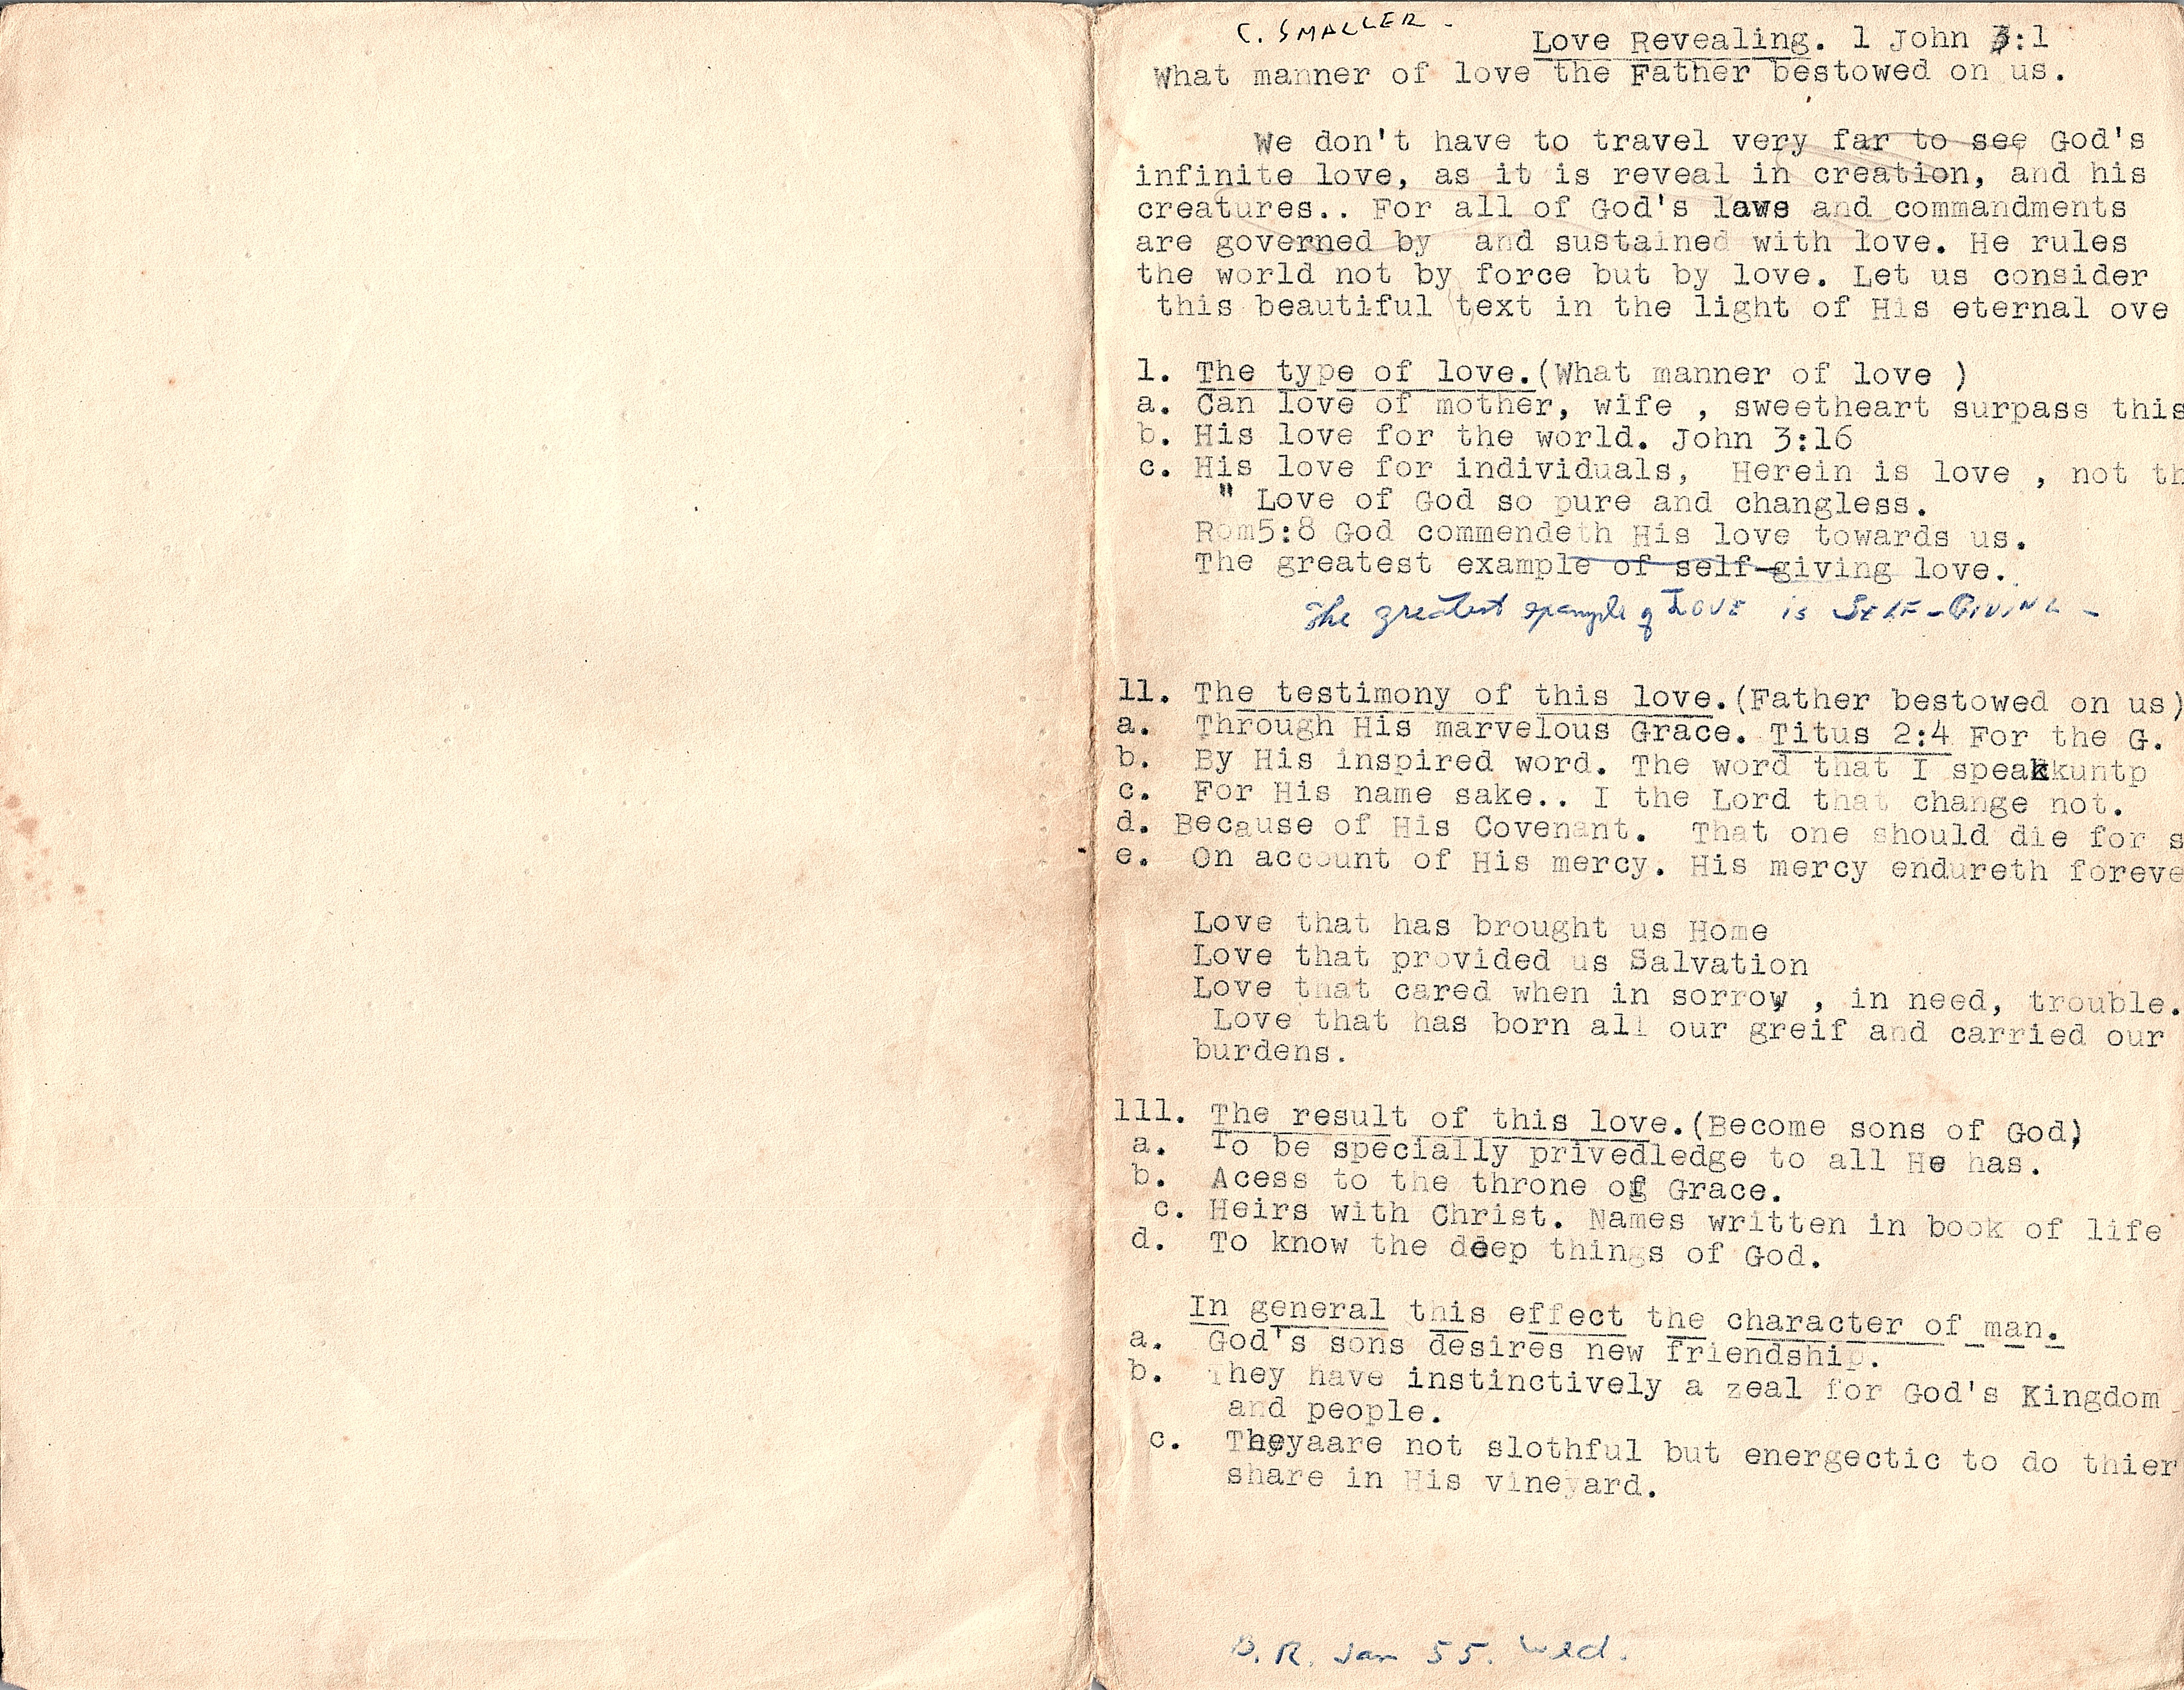 C. SMALLER.
Love Revealing. 1 John 3:1
What manner of love the Father bestowed on us.
We don't have to travel very far to see God's
infinite love, as it is reveal in creation, and his
creatures.. For all of God's laws and commandments
are governed by and sustained with love. He rules
the world not by force but by love. Let us consider
this beautiful text in the light of His eternal ove
1. The type of love.(What manner of love )
a. Can love of mother, wife , sweetheart surpass this
b. His love for the world. John 3:16
c. His love for individuals, Herein is love , not th
" Love of God so pure and changless.
Rom5:8 God commendeth His love towards us.
The greatest example of self-giving love.
The greatest example of LOVE is SELF-GIVING -
11. The testimony of this love.(Father bestowed on us)
a. Through His marvelous Grace. Titus 2:4 For the G.
b. By His inspired word. The word that I speakkuntp
c. For His name sake.. I the Lord that change not.
d. Because of His Covenant. That one should die for s
e. On account of His mercy. His mercy endureth foreve
Love that has brought us Home
Love that provided us Salvation
Love that cared when in sorrow , in need, trouble.
Love that has born all our greif and carried our
burdens.
111. The result of this love.(Become sons of God)
a. To be specially privedledge to all He has.
b. Acess to the throne of Grace.
c. Heirs with Christ. Names written in book of life
d. To know the deep things of God.
In general this effect the character of man.
a. God's sons desires new friendship.
b. They have instinctively a zeal for God's Kingdom
and people.
c. Theyaare not slothful but energectic to do thier
share in His vineyard.
B. R. Jan 55. Wed.